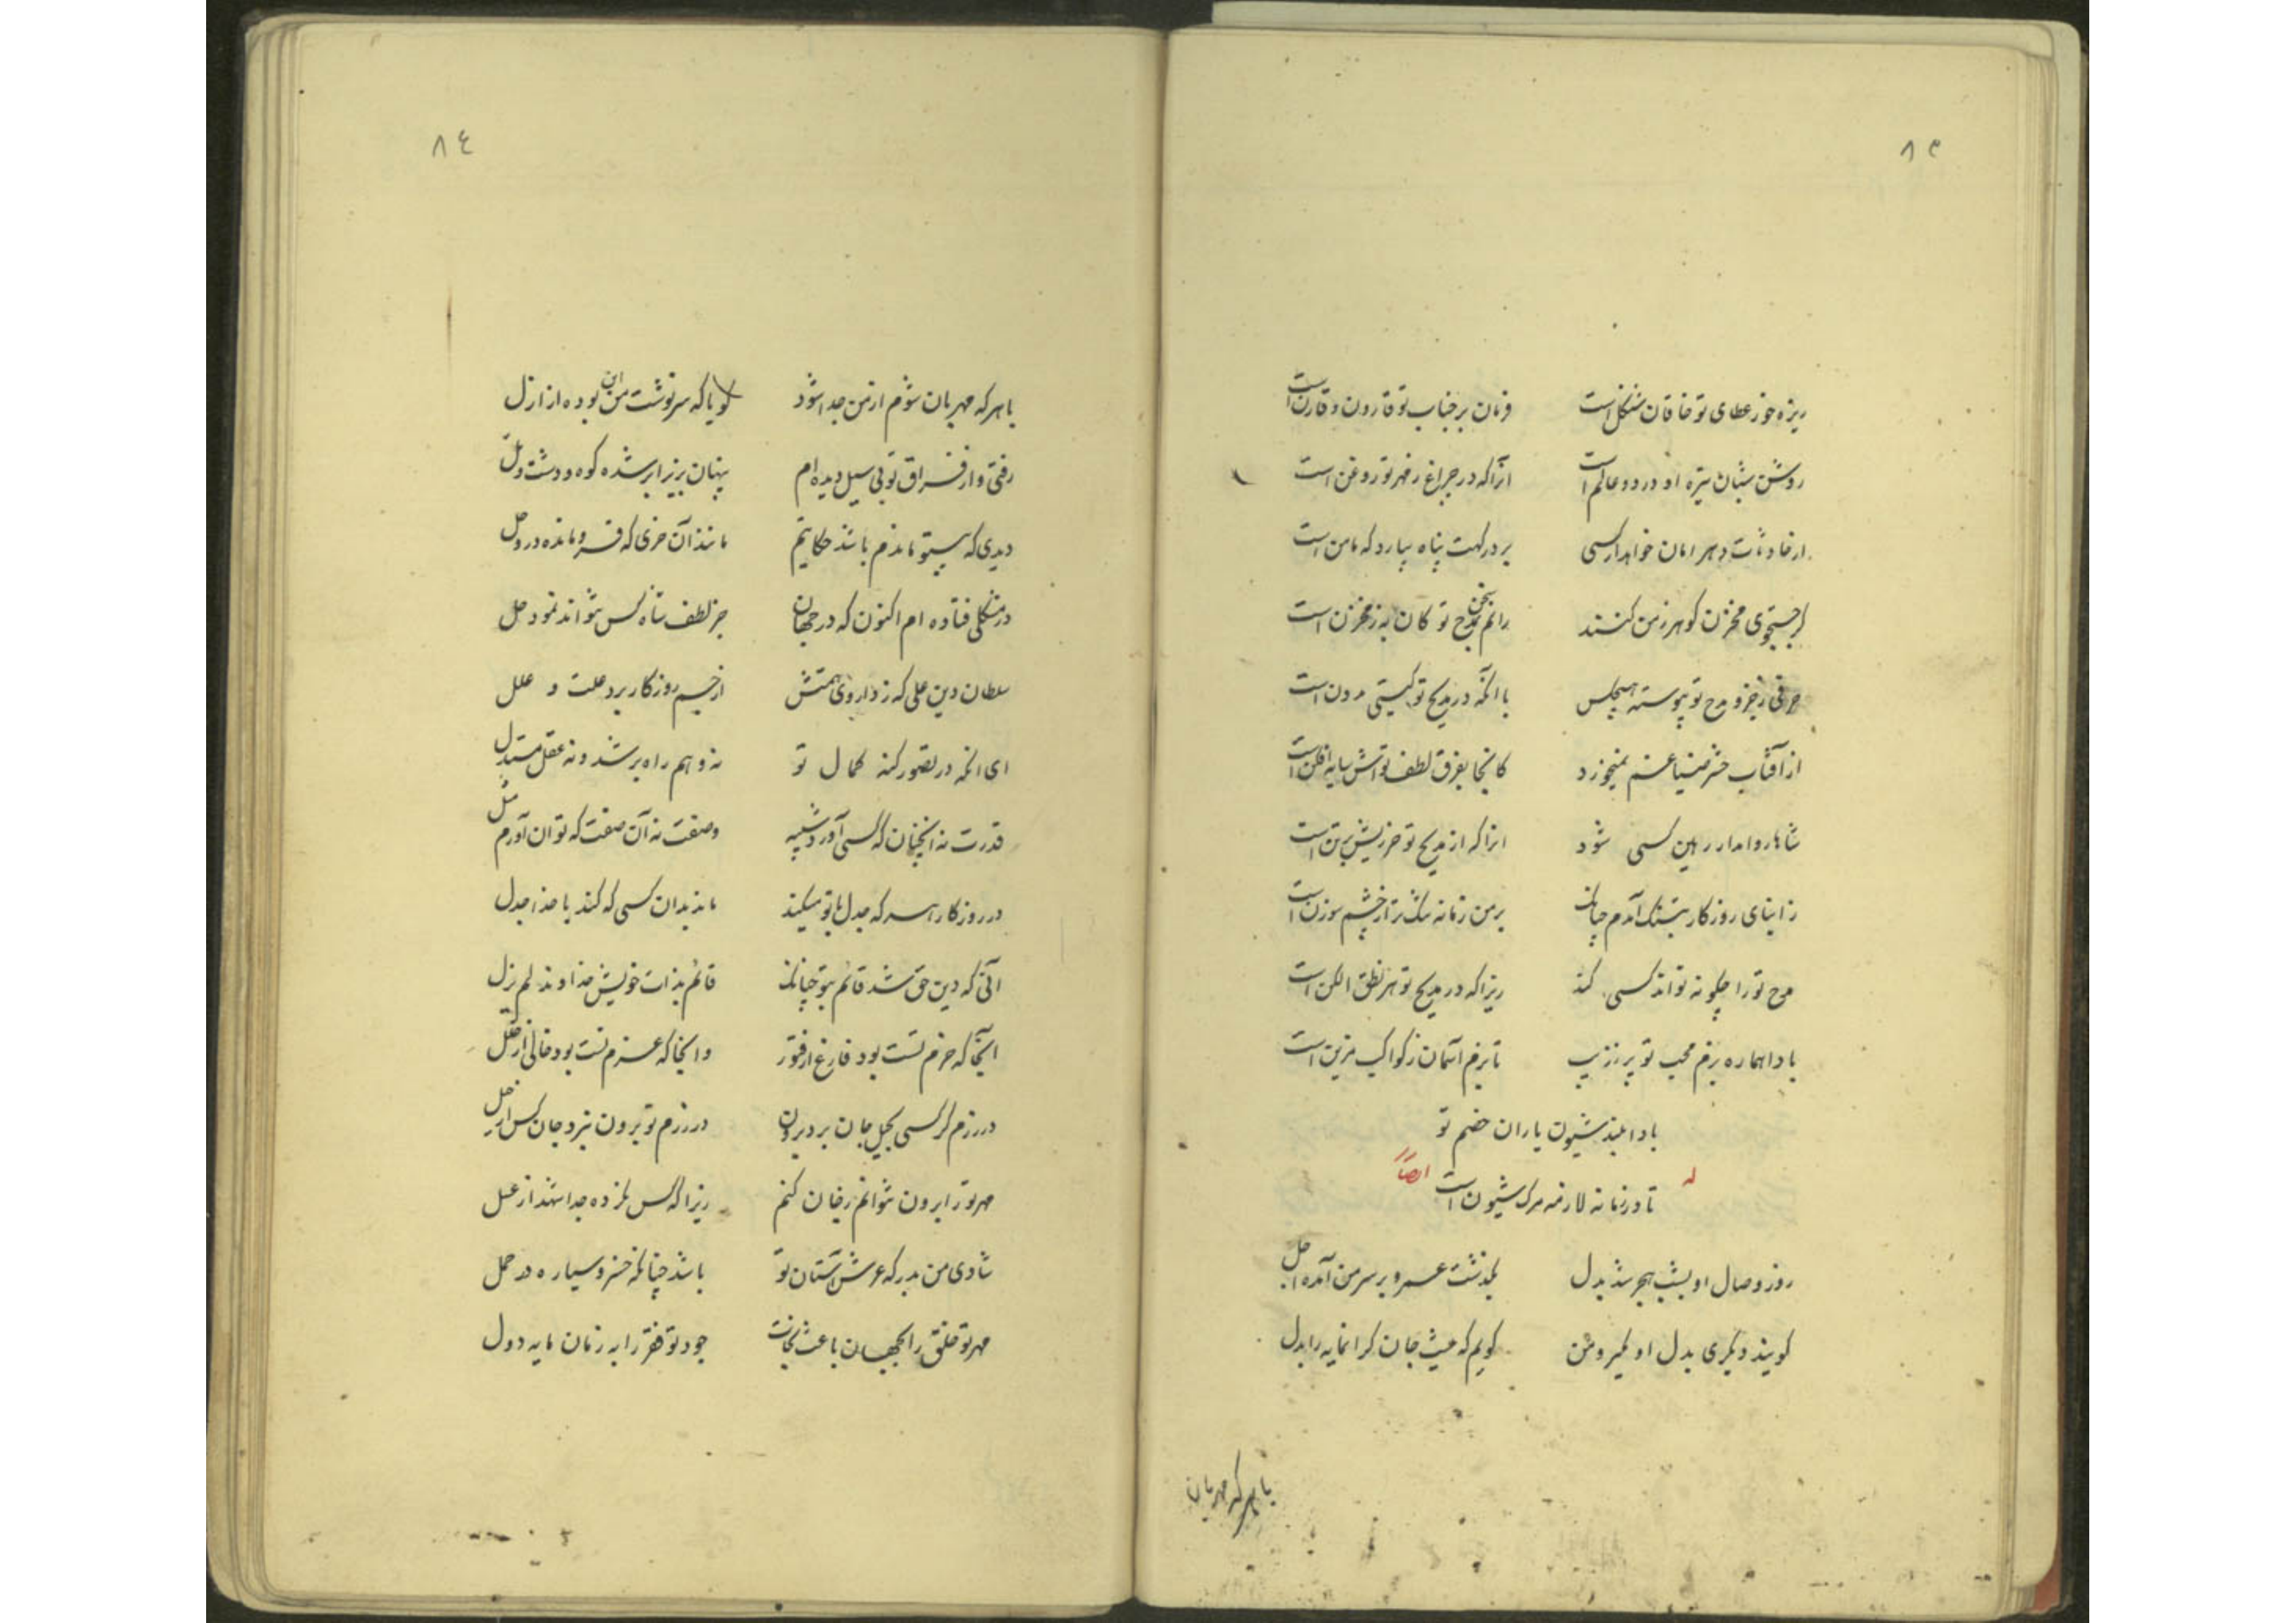 ۸۳
ریزه خور عطای تو خاقان شنکل است
فرمان بر جناب تو قارون و قارن است
روشن شبان تیره او در دو عالم است
آنرا که در چراغ ز مهر تو روغن است
از حادثات دهر امان خواهد ار کسی
بر درگهت پناه بیارد که مامن است
گر جستجوی مخزن گوهر ز من کنند
رانم سخن بمدح تو کان به ز مخزن است
حرفی ز جزو مدح تو پیوسته هیچکس
با آنکه در مدیح تو گیتی مدون است
از آفتاب حشر ضیا غم نمیخورد
کانجا بفرق لطف تواش سایه افکن است
شاها روا مدار رهین کسی شود
آنرا که از مدیح تو حرزیش بر تن است
ز ابنای روزگار بتنگ آمدم چنانک
بر من زمانه تنگ تر از چشم سوزن است
مدح تو را چگونه تواند کسی کند
زیرا که در مدیح تو هر نطق الکن است
بادا هماره بزم محب تو پر ز زیب
تا بزم آسمان ز کواکب مزین است
بادا بلند شیون یاران خصم تو
تا در زمانه لازمه مرگ شیون است
وله ایضاً
روز وصال او بشب هجر شد بدل
بگذشت عمر و بر سر من آمده اجل
گویند دیگری بدل او بگیر و من
گویم که نیست جان گرانمایه را بدل
با هر که مهربان
۸٤
با هر که مهربان شوم از من جدا شود
گویا که سرنوشت من این بوده از ازل
رفتی و از فراق تو بی سیل دیده ام
پنهان بزیر ابر شده کوه و دشت و تل
دیدی که بیتو ماندم باشد حکایتم
مانند آن خری که فرو مانده در وحل
در مشکلی فتاده ام اکنون که در جهان
جز لطف شاه کس نتواند نمود حل
سلطان دین علی که ز داروی همتش
از جسم روزگار برد علت و علل
ای آنکه در تصور کنه کمال تو
نه وهم راه بر شد و نه عقل مستدل
قدرت نه آنچنان که کسی آورد شبیه
وصفت نه آن صفت که توان آورم مثل
در روزگار هر که جدل با تو میکند
ماند بدان کسی که کند با خدا جدل
آنی که دین حق شده قائم بتو چنانک
قائم بذات خویش خداوند لم یزل
آنجا که حزم تست بود فارغ از فتور
وآنجا که عزم تست بود خالی از خلل
در رزم گر کسی بحیل جان برد برون
در رزم تو برون نبرد جان کس از حیل
مهر تو را برون نتوانم ز جان کنم
زیرا که کس نکرده جدا شهد از عسل
شادی من بدرگه عرش آستان تو
باشد چنانکه خسرو سیاره در حمل
مهر تو خلق را بجهان باعث نجات
جود تو فقر را به زمان مایه دول